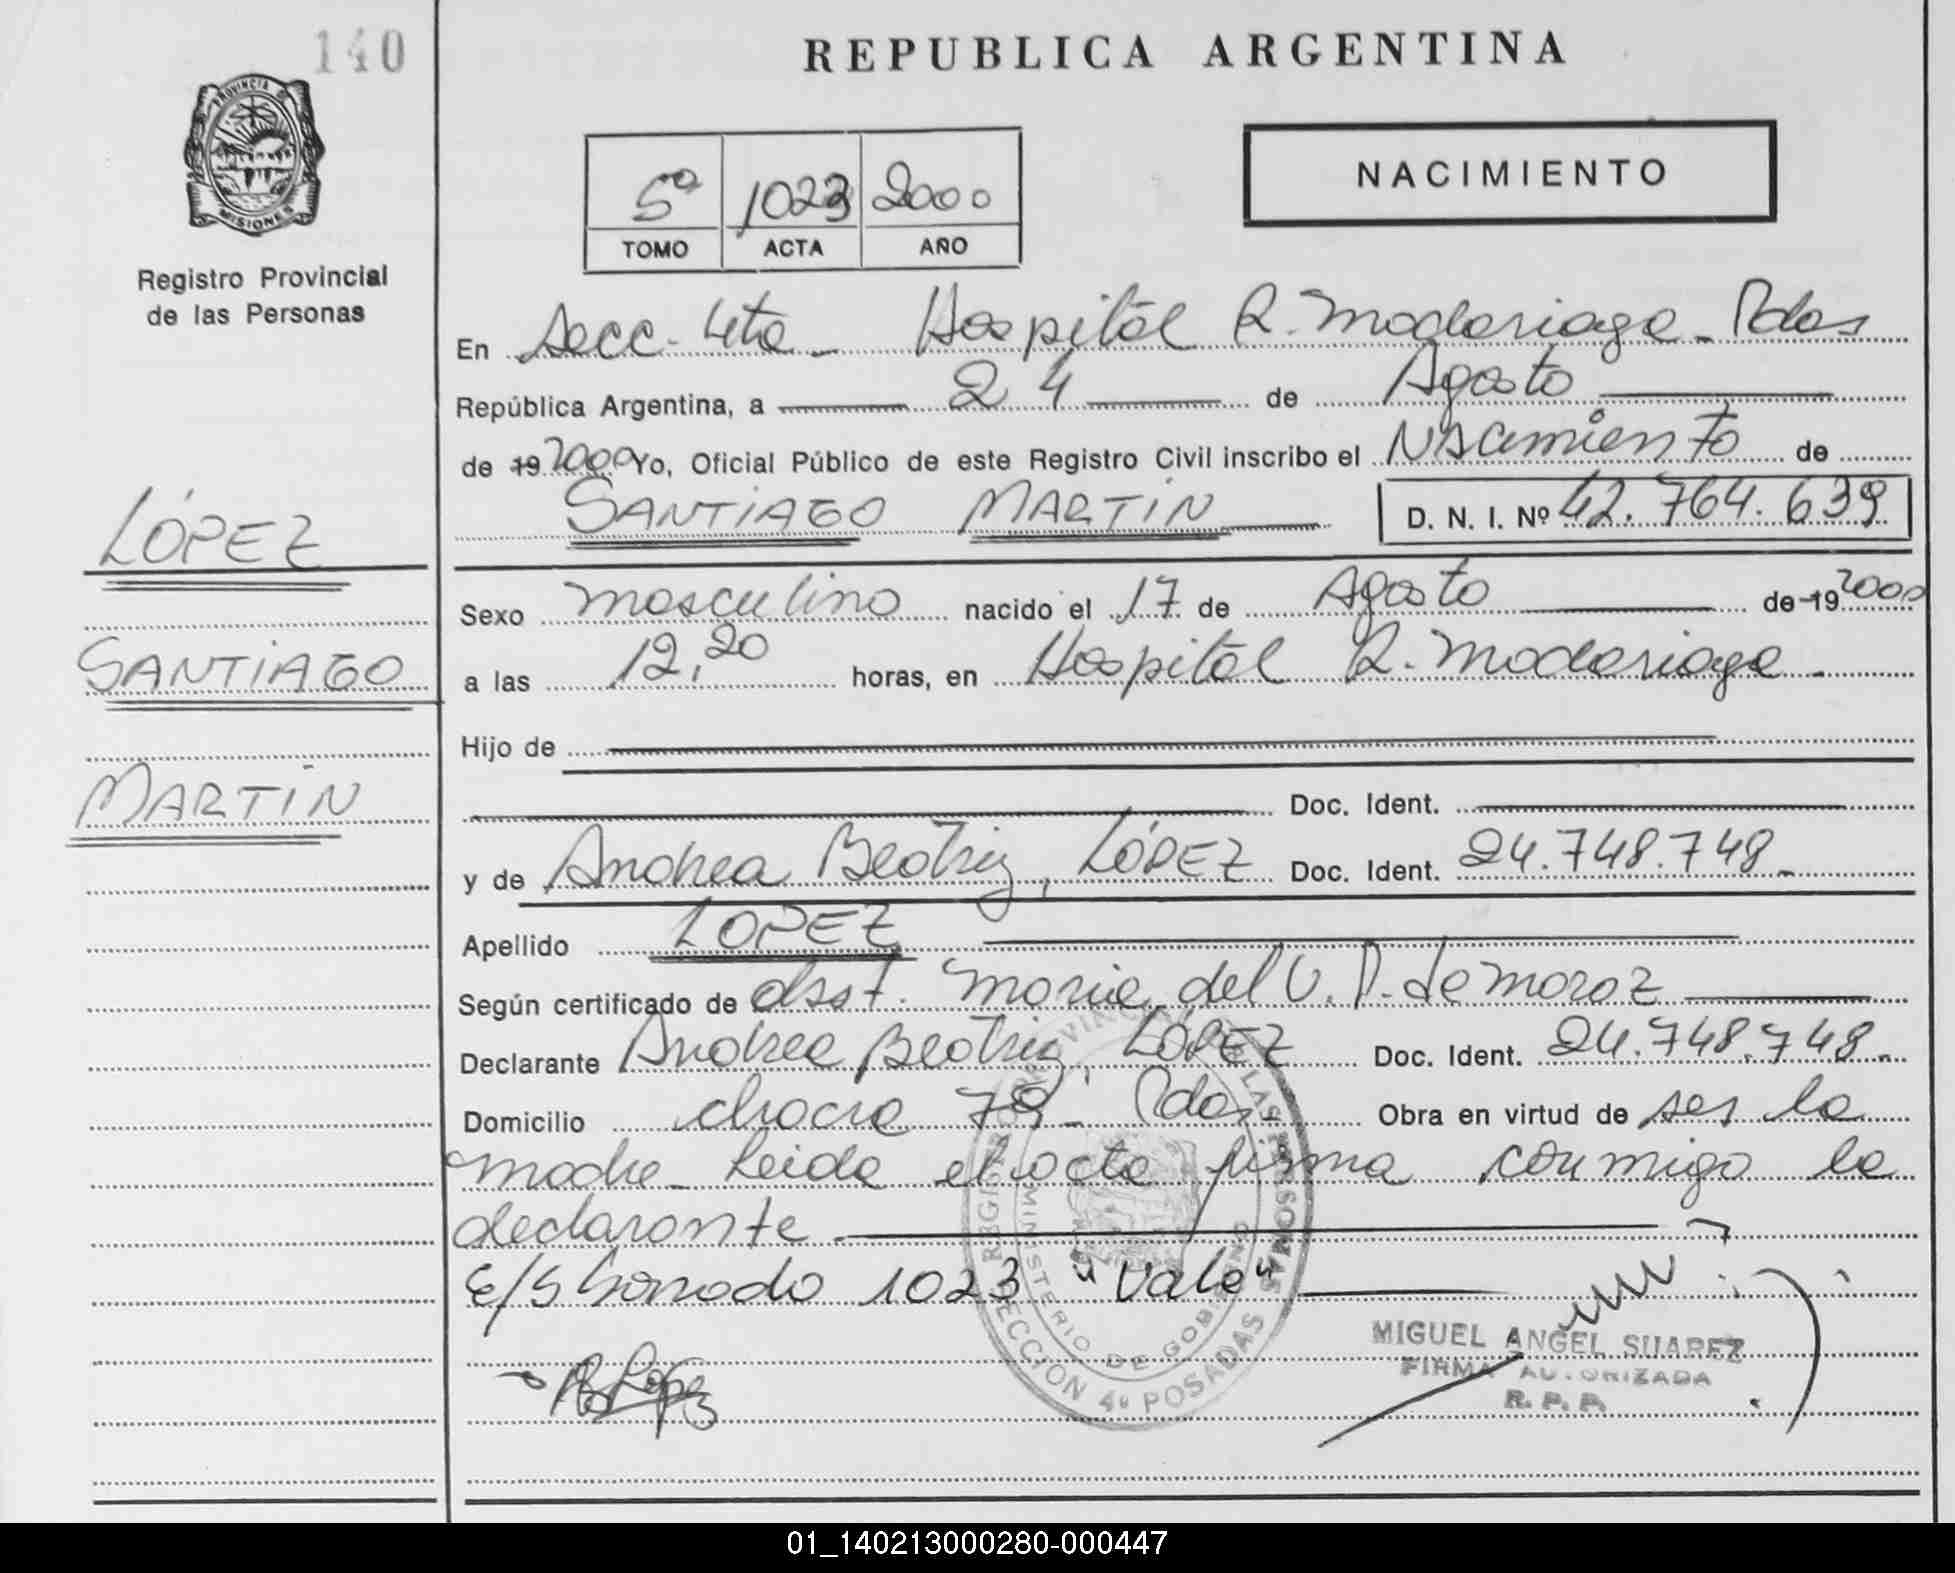 140
REPUBLICA ARGENTINA
PROVINCIA DE
MISIONES
Registro Provincial
de las Personas
5º 1023 2000
TOMO ACTA AÑO
NACIMIENTO
En Secc. 4ta - Hospital R. Madariaga - Pdas
República Argentina, a 24 de Agosto
de 19 2000 Yo, Oficial Público de este Registro Civil inscribo el Nacimiento de
SANTIAGO MARTIN D. N. I. Nº 42.764.639
LÓPEZ
SANTIAGO
MARTIN
Sexo masculino nacido el 17 de Agosto de 19 2000
a las 12,20 horas, en Hospital R. Madariaga -
Hijo de
Doc. Ident.
y de Andrea Beatriz, LÓPEZ Doc. Ident. 24.748.748.-
Apellido LOPEZ
Según certificado de obst. Maria del V. P. de Moroz
Declarante Andrea Beatriz, LÓPEZ Doc. Ident. 24.748.748.-
Domicilio chacra 79 - Pdas Obra en virtud de ser la
madre - Leida el acta firma conmigo la
declarante
E/S borrado 1023 "Vale"
REGISTRO PROVINCIAL DE LAS PERSONAS
MINISTERIO DE GOBIERNO
SECCION 4º POSADAS
MIGUEL ANGEL SUAREZ
FIRMA AUTORIZADA
R. P. P.
01_140213000280-000447